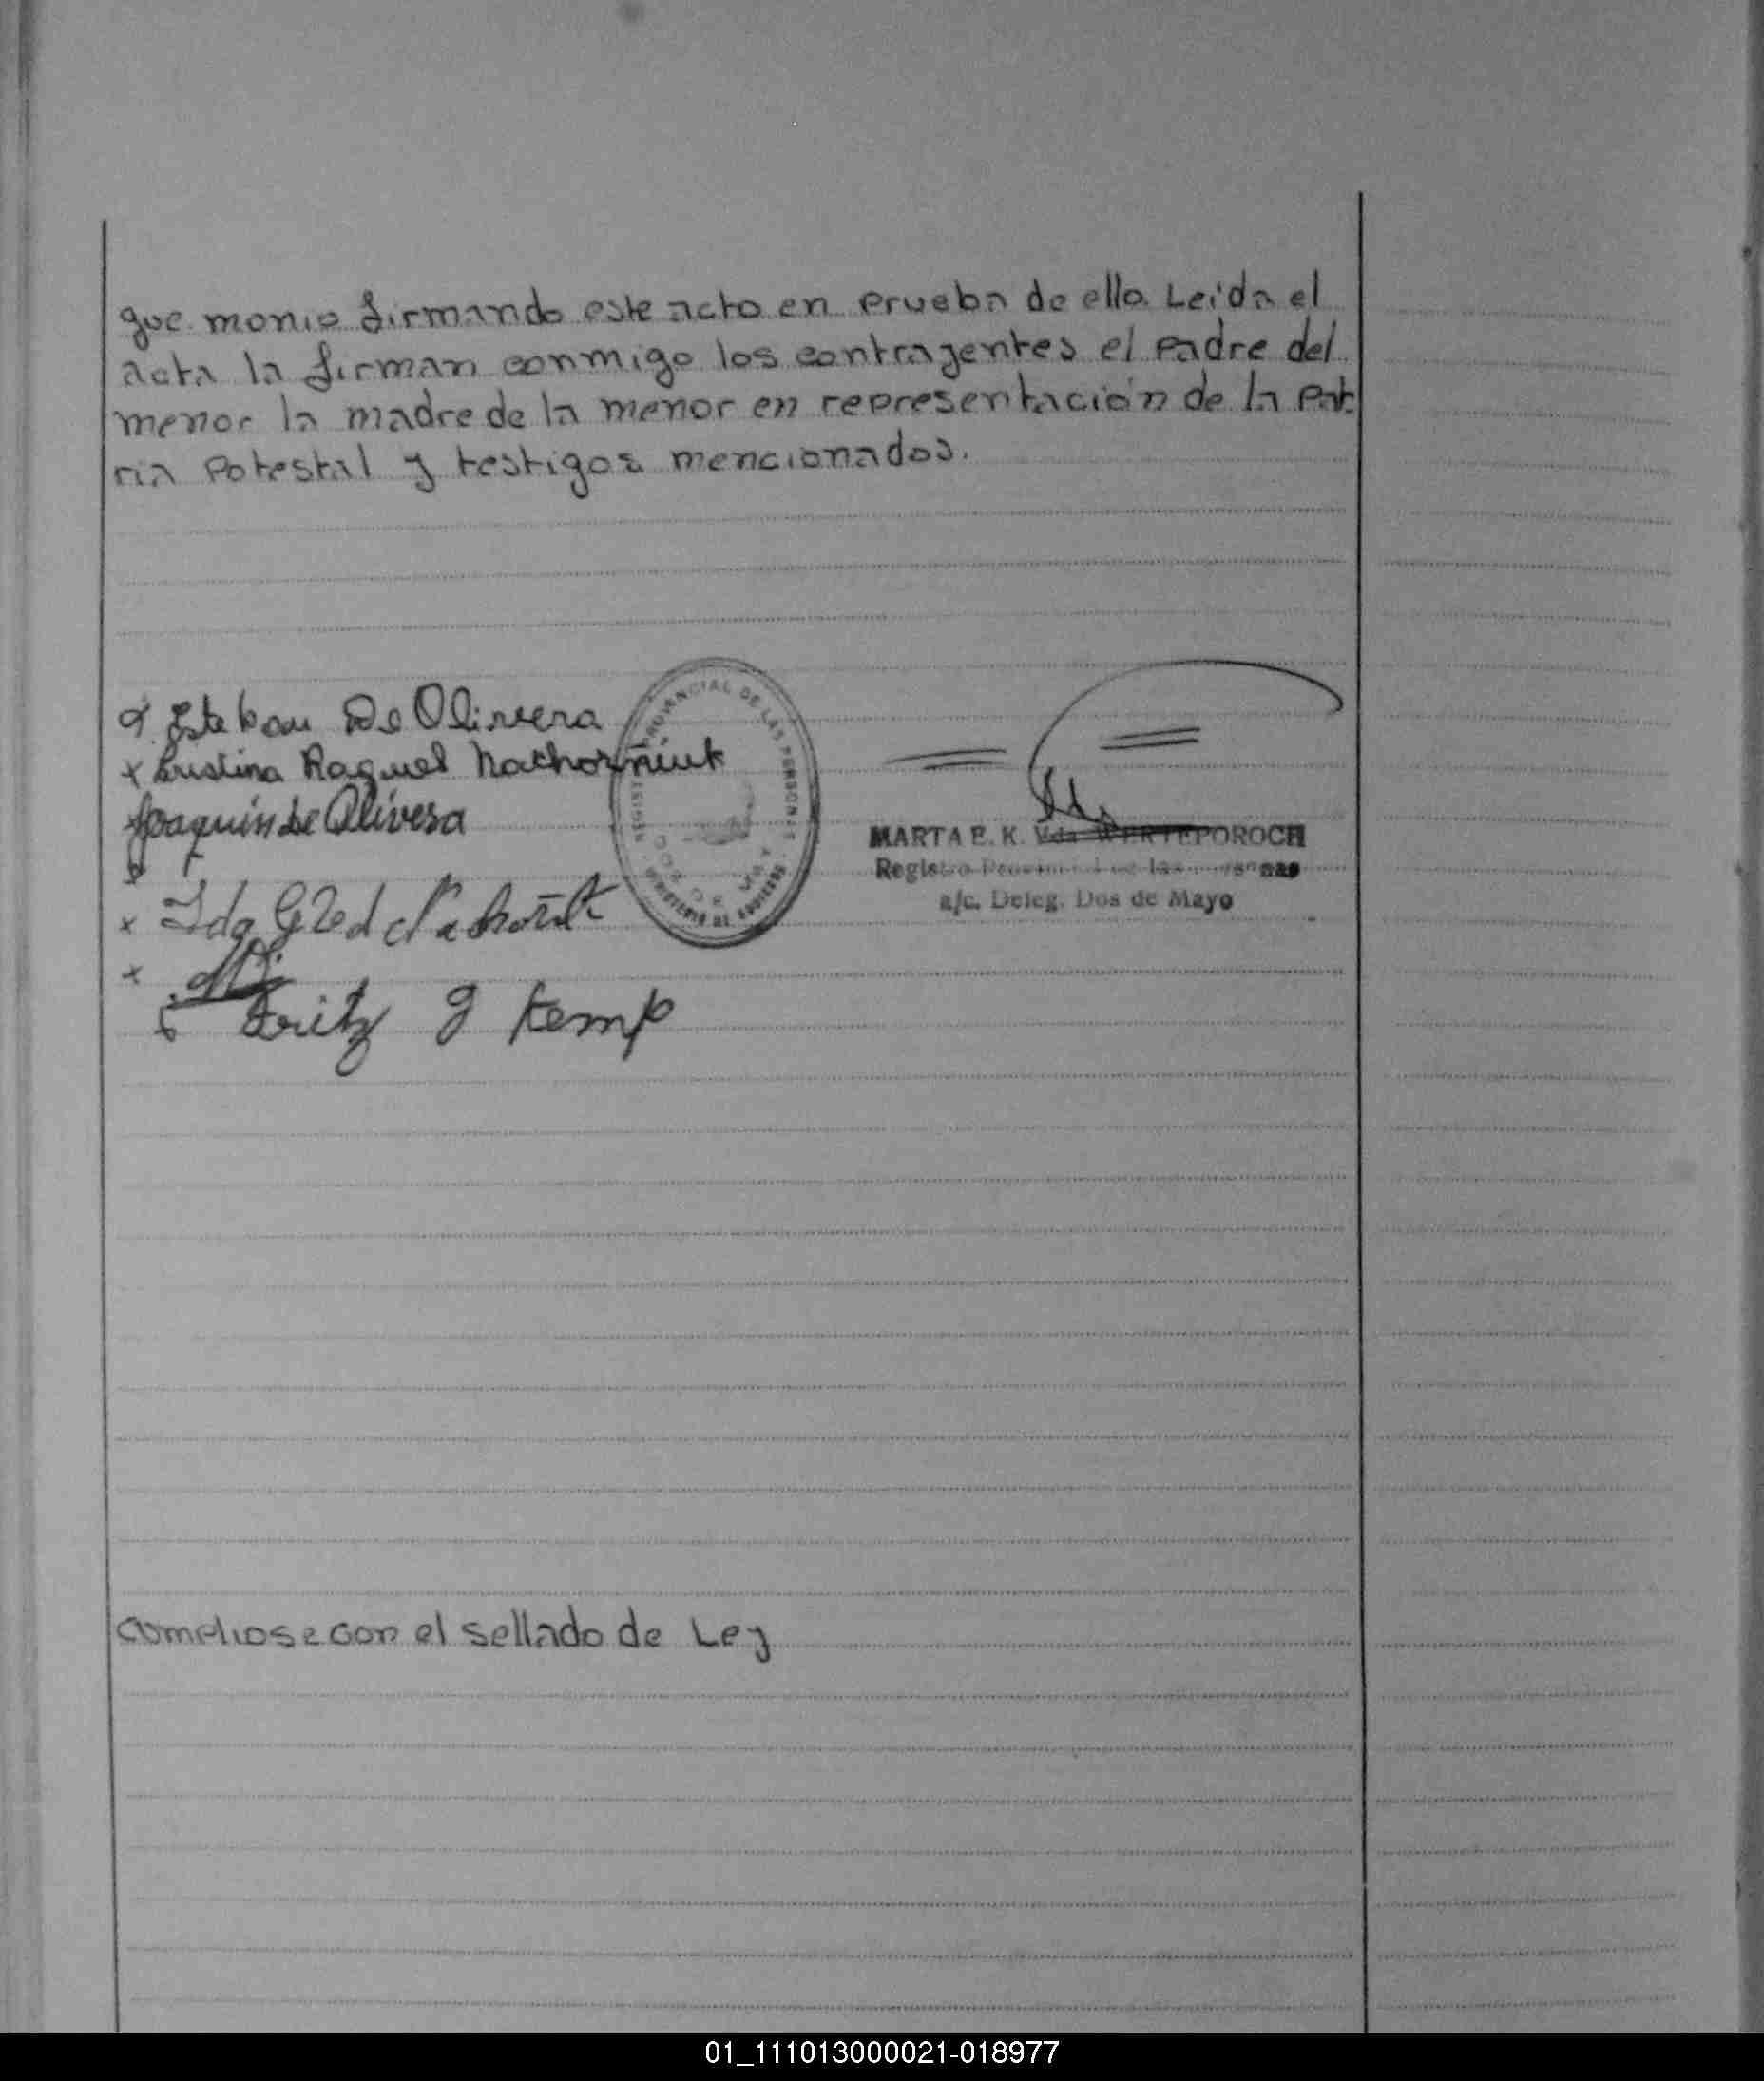 que monio firmando este acto en prueba de ello. Leida el
acta la firman conmigo los contrayentes el padre del
menor la madre de la menor en representación de la Pat
ria Potestal y testigos mencionados.
Esteban De Olivera
x Cristina Raquel
Joaquín de Olivera
x Ida
x
Fritz J Kemp
PROVINCIAL DE LAS PERSONAS
DOS DE MAYO
MARTA E. K. Vda
Registro Provincial de las Personas
a/c. Deleg. Dos de Mayo
Cumpliose con el sellado de Ley
01_111013000021-018977